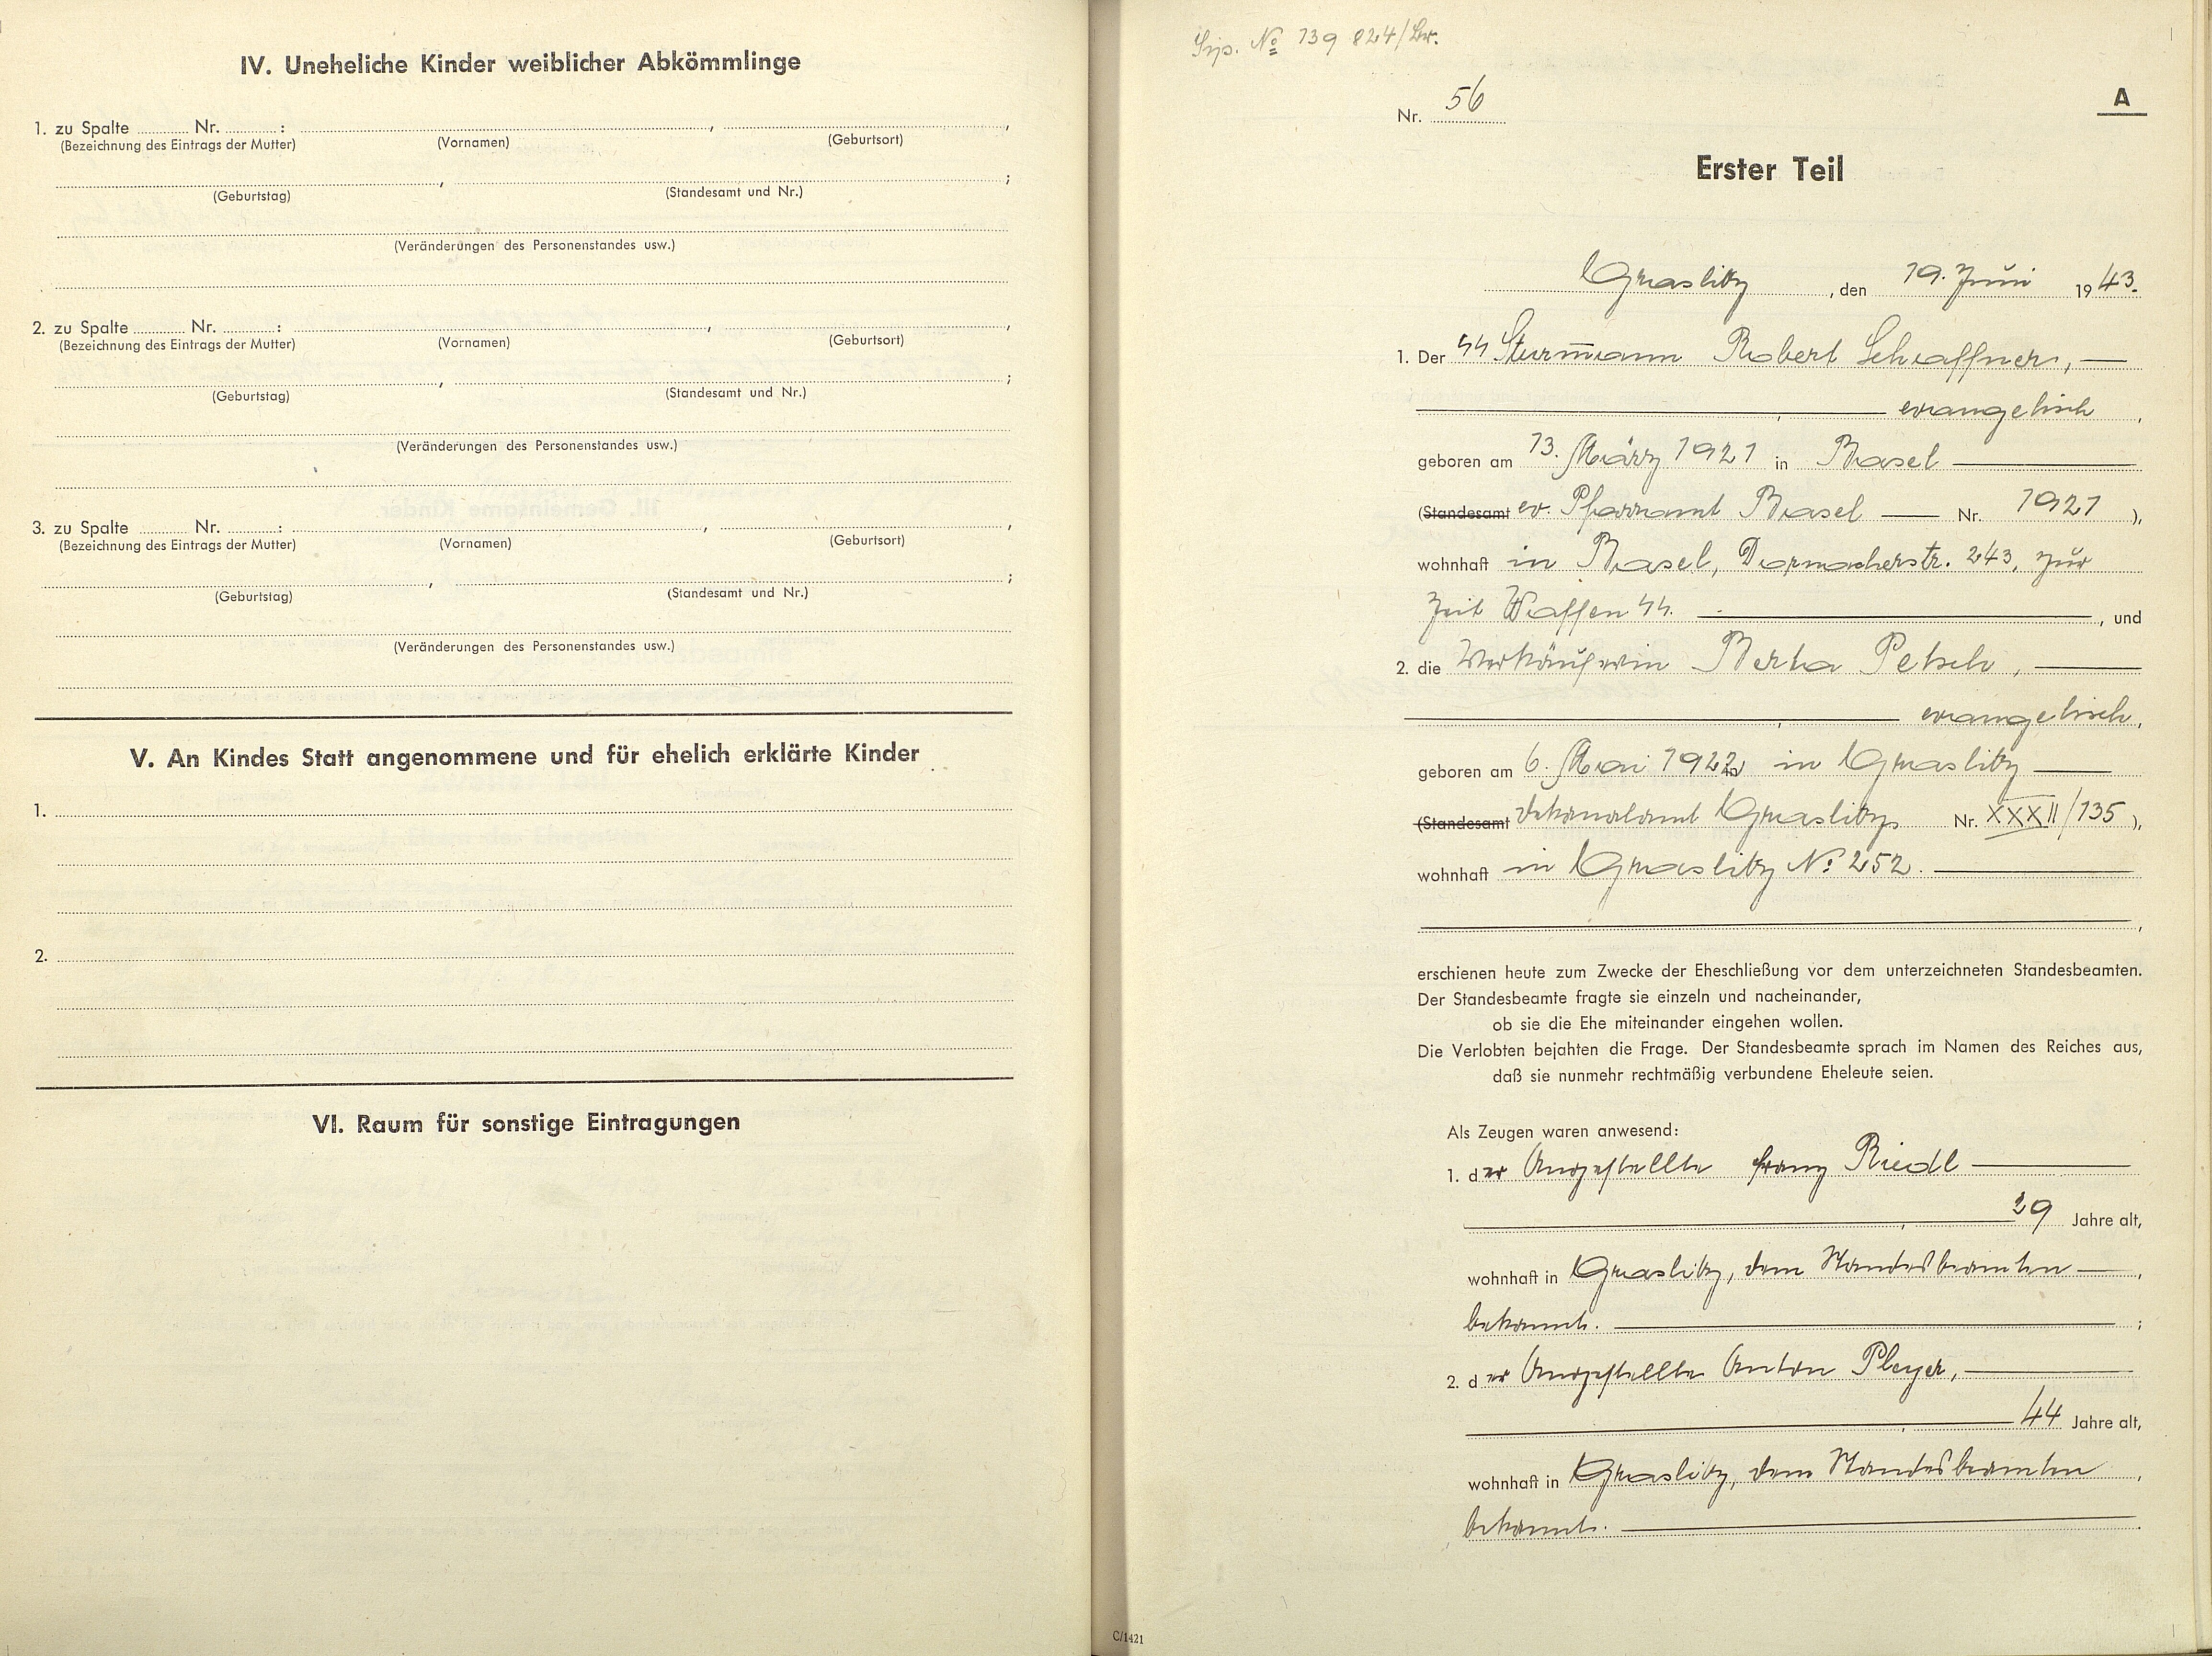 IV. Uneheliche Kinder weiblicher Abkömmlinge
1. zu Spalte ......... Nr. ......... : , ,
(Bezeichnung des Eintrags der Mutter) (Vornamen) (Geburtsort)
, ;
(Geburtstag) (Standesamt und Nr.)
(Veränderungen des Personenstandes usw.)
2. zu Spalte ......... Nr. ......... : , ,
(Bezeichnung des Eintrags der Mutter) (Vornamen) (Geburtsort)
, ;
(Geburtstag) (Standesamt und Nr.)
(Veränderungen des Personenstandes usw.)
3. zu Spalte ......... Nr. ......... : , ,
(Bezeichnung des Eintrags der Mutter) (Vornamen) (Geburtsort)
, ;
(Geburtstag) (Standesamt und Nr.)
(Veränderungen des Personenstandes usw.)
V. An Kindes Statt angenommene und für ehelich erklärte Kinder
1.
2.
VI. Raum für sonstige Eintragungen
No 139 824/
Nr. 56
A
Erster Teil
Graslitz, den 19. Juni 1943.
1. Der SS Sturmann Robert Schaffner, —
— evangelisch,
geboren am 13. März 1921 in Basel —
(Standesamt ev. Pfarramt Basel — Nr. 1921),
wohnhaft in Basel, Dornacherstr. 243, zur
Zeit Waffen SS. —, und
2. die Verkäuferin Berta Petsch, —
— evangelisch,
geboren am 6. Mai 1922 in Graslitz —
(Standesamt Dekanalamt Graslitz Nr. XXXII/135),
wohnhaft in Graslitz No 252. —
—,
erschienen heute zum Zwecke der Eheschließung vor dem unterzeichneten Standesbeamten.
Der Standesbeamte fragte sie einzeln und nacheinander,
ob sie die Ehe miteinander eingehen wollen.
Die Verlobten bejahten die Frage. Der Standesbeamte sprach im Namen des Reiches aus,
daß sie nunmehr rechtmäßig verbundene Eheleute seien.
Als Zeugen waren anwesend:
1. der Angestellte Franz Riedl —
— 29 Jahre alt,
wohnhaft in Graslitz, dem Standesbeamten —,
bekannt. —;
2. der Angestellte Anton Player, —
— 44 Jahre alt,
wohnhaft in Graslitz, dem Standesbeamten,
bekannt. —.
C/1421